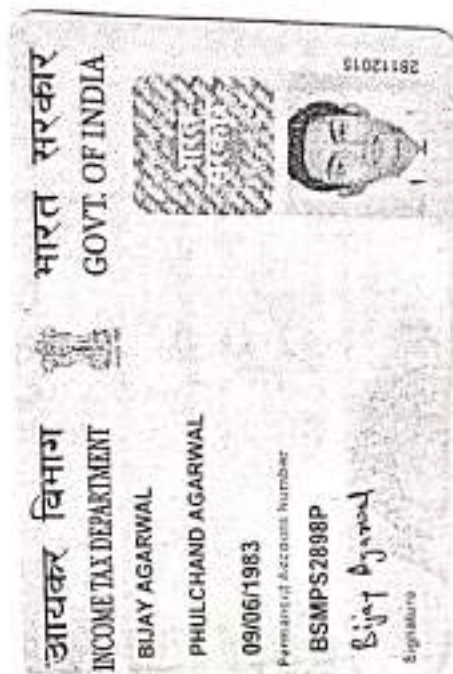 आयकर विभाग
INCOME TAX DEPARTMENT
भारत सरकार
GOVT. OF INDIA
BIJAY AGARWAL
PHULCHAND AGARWAL
09/06/1983
Permanent Account Number
BSMPS2898P
Bijay Agarwal
Signature
भारत सरकार
28112015